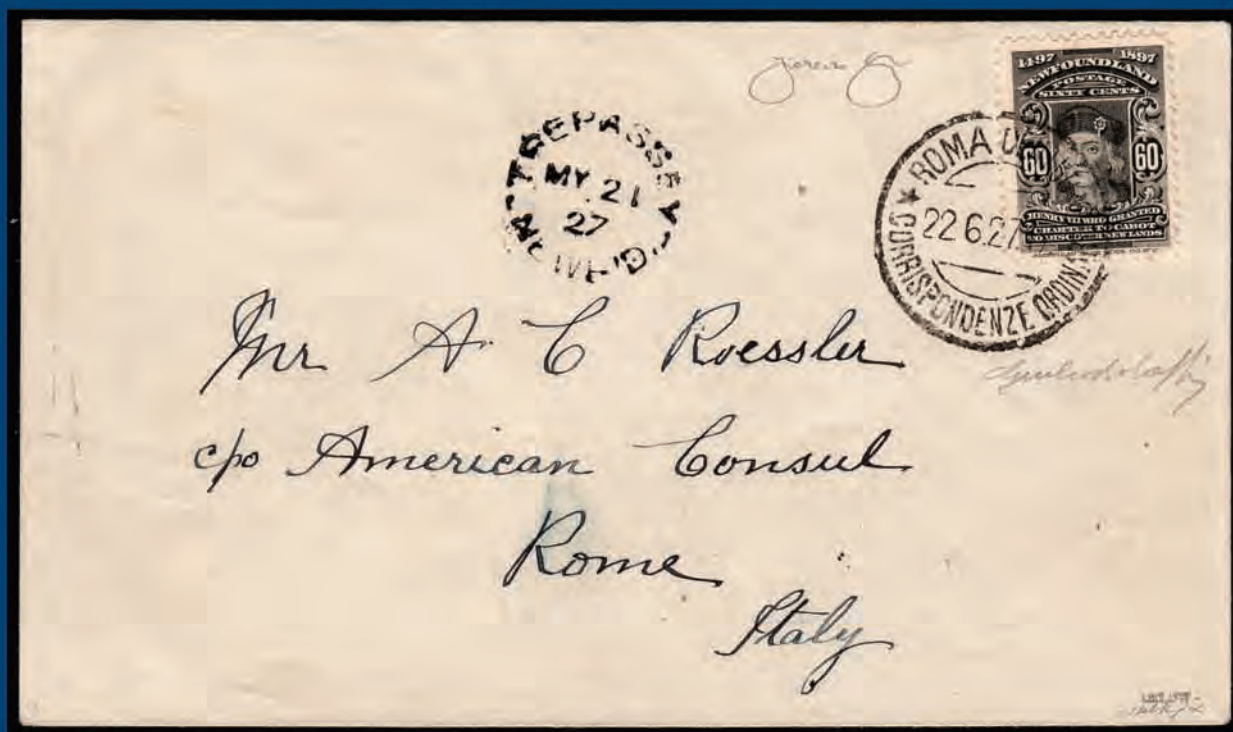 1497 1897
NEWFOUNDLAND
POSTAGE
SIXTY CENTS
60 60
HENRY VII WHO GRANTED
CHARTER TO CABOT
TO DISCOVER NEW LANDS
TREPASSEY
MY 21
27
NEW F'D.
ROMA
22 6.27
★ CORRISPONDENZE ORDIN
Mr A. C Roessler
c/o American Consul
Rome
Italy